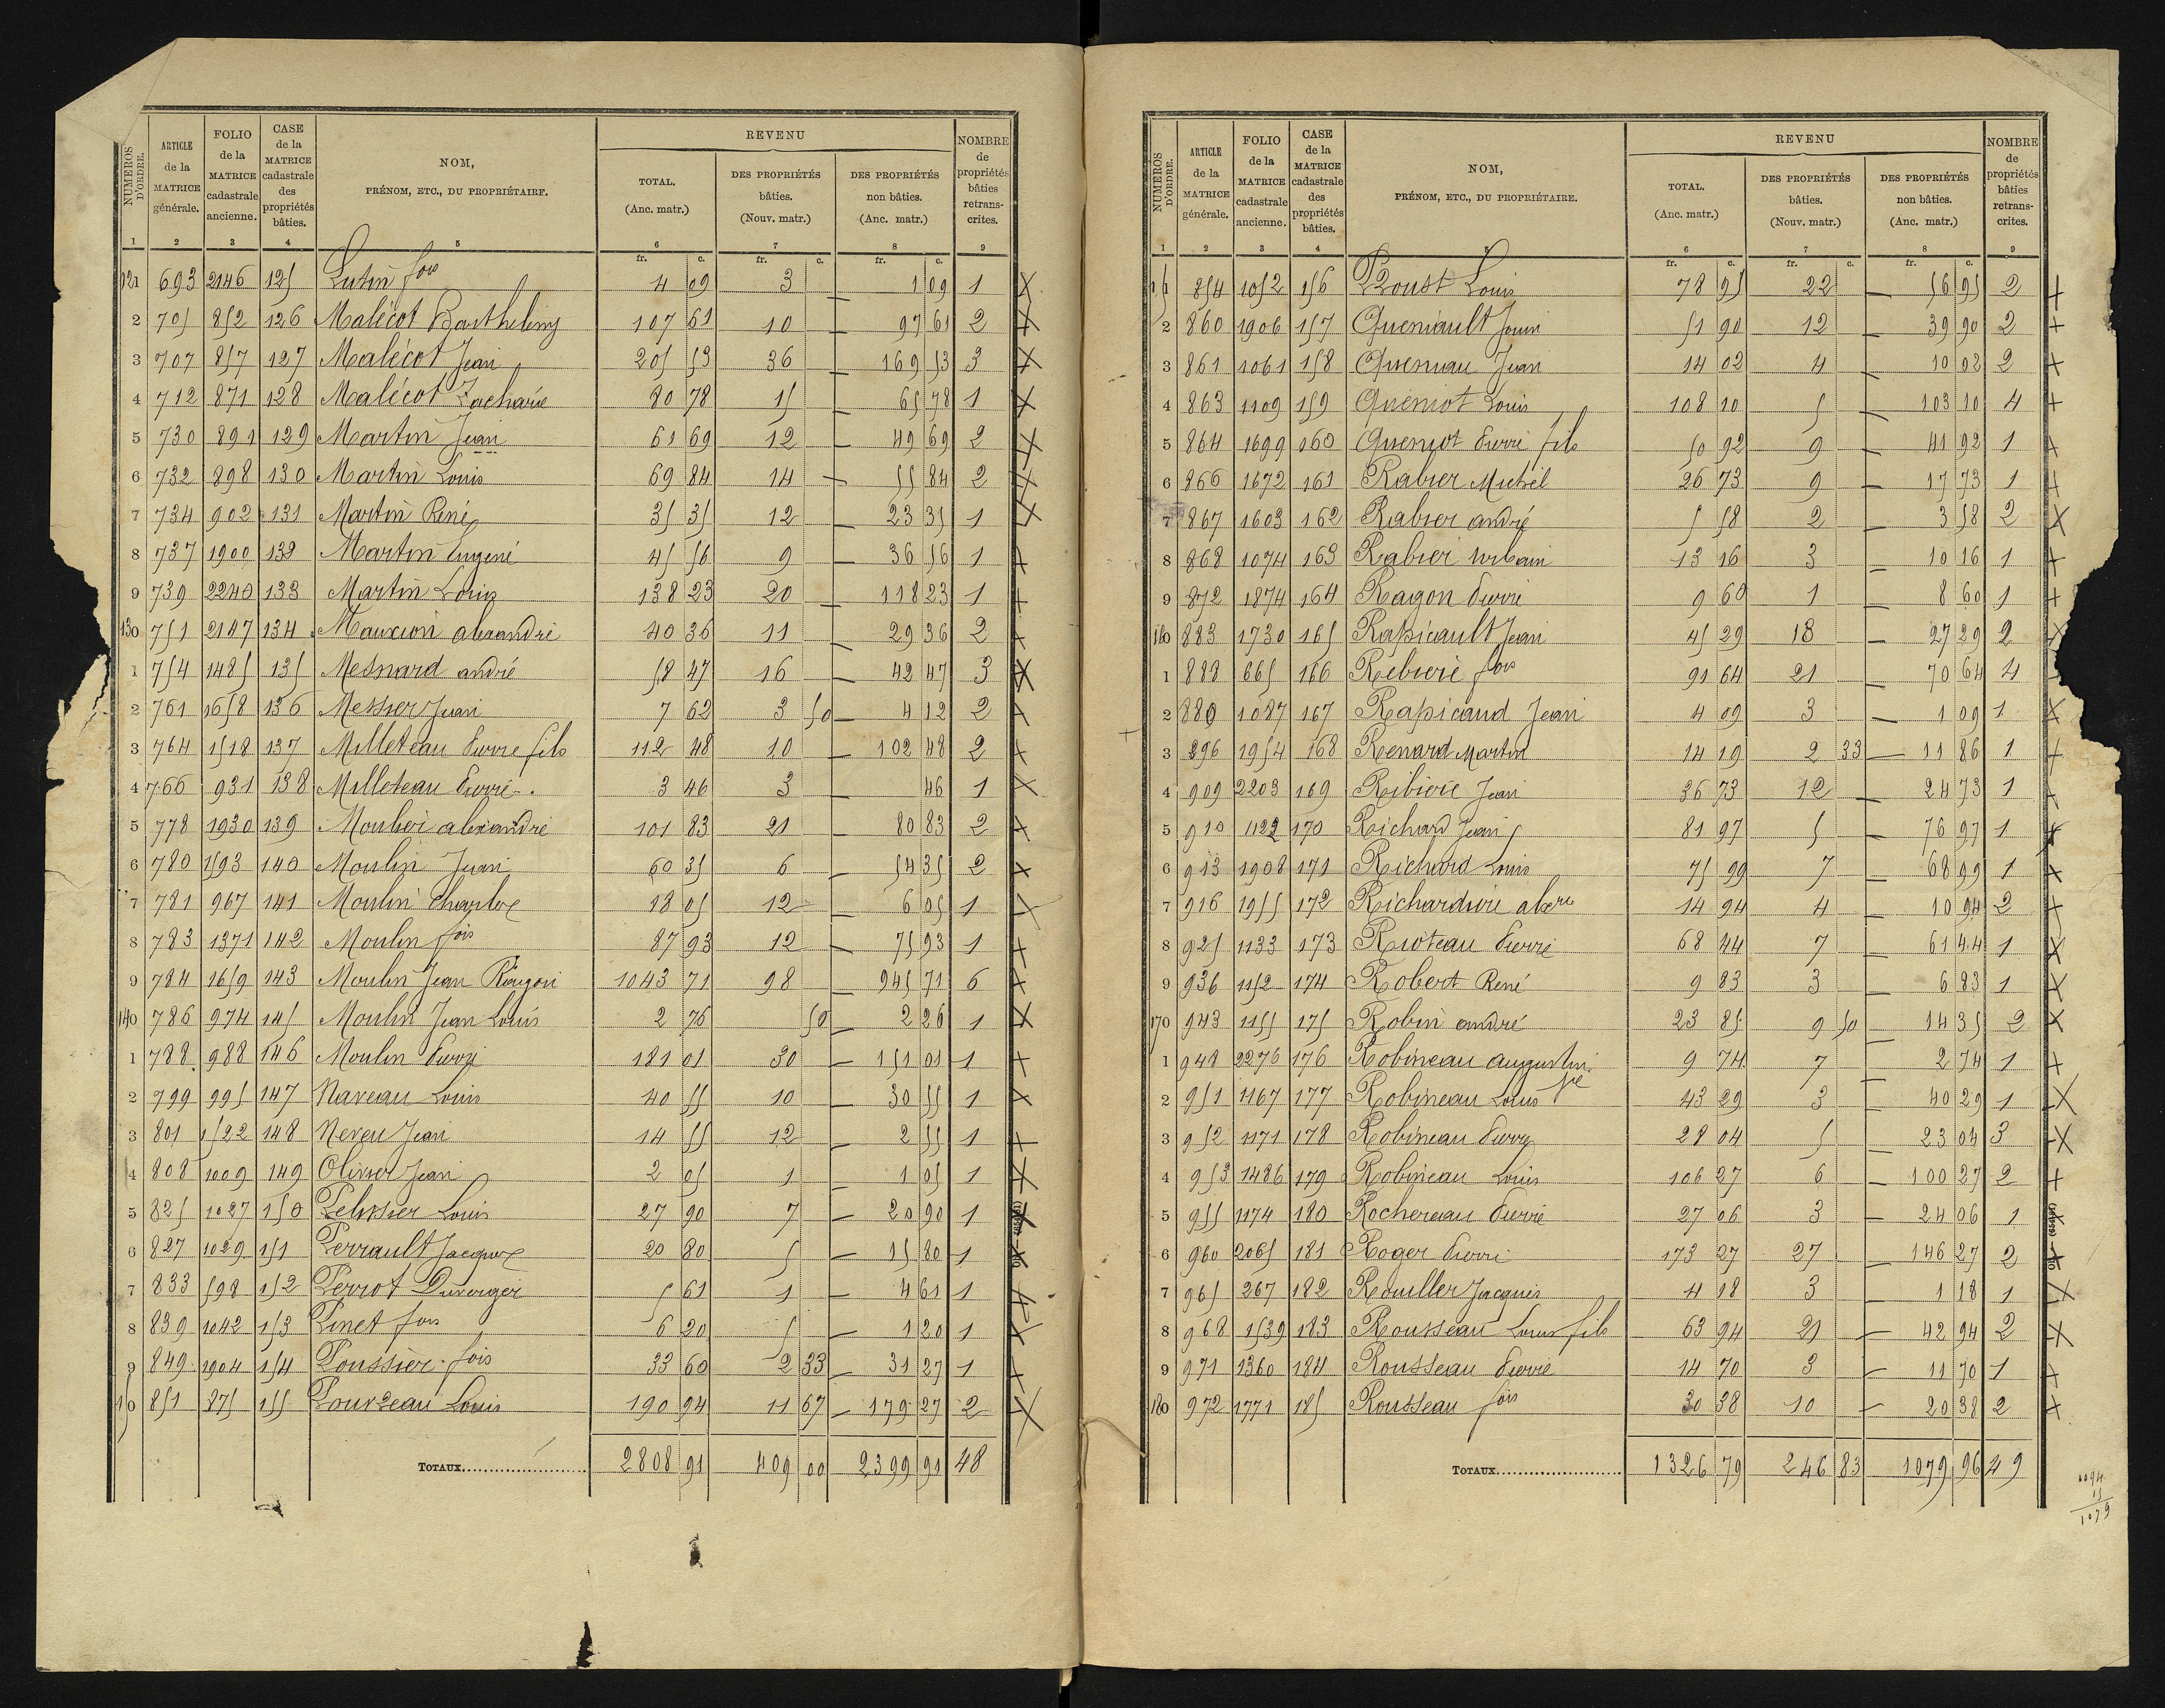 NUMÉROS D'ORDRE. | ARTICLE de la MATRICE générale. | FOLIO de la MATRICE cadastrale ancienne. | CASE de la MATRICE cadastrale des propriétés bâties. | NOM, PRÉNOM, ETC., DU PROPRIÉTAIRE. | REVENU | NOMBRE de propriétés bâties retranscrites.
TOTAL. (Anc. matr.) | DES PROPRIÉTÉS bâties. (Nouv. matr.) | DES PROPRIÉTÉS non bâties. (Anc. matr.)
1 2 3 4 5 6 7 8 9
fr. c. fr. c. fr. c.
121 693 2146 125 Lutin fois 4 09 3 — 1 09 1 X
2 705 852 126 Malécot Barthelemy 107 61 10 — 97 61 2 X
3 707 857 127 Malécot Jean 205 53 36 — 169 53 3 X
4 712 871 128 Malécot Zacharie 80 78 15 — 65 78 1 X
5 730 891 129 Martin Jean 61 69 12 — 49 69 2 X
6 732 898 130 Martin Louis 69 84 14 — 55 84 2 X
7 734 902 131 Martin René 35 35 12 — 23 35 1 X
8 737 1900 132 Martin Eugené 45 56 9 — 36 56 1 X
9 739 2240 133 Martin Louis 138 23 20 — 118 23 1 X
130 751 2147 134 Mauxion alexandre 40 36 11 — 29 36 2 X
1 754 1485 135 Mesnard andré 58 47 16 — 42 47 3 X
2 761 1658 136 Messier Jean 7 62 3 50 — 4 12 2 X
3 764 1518 137 Milleteau Pierre fils 112 48 10 — 102 48 2 X
4 766 931 138 Milleteau Pierre 3 46 3 — 46 1 X
5 778 1930 139 Moulin alexandre 101 83 21 — 80 83 2 X
6 780 1593 140 Moulin Jean 60 35 6 — 54 35 2 X
7 781 967 141 Moulin Charles 18 05 12 — 6 05 1 X
8 783 1371 142 Moulin fois 87 93 12 — 75 93 1 X
9 784 1659 143 Moulin Jean Raugon 1043 71 98 — 945 71 6 X
140 786 974 145 Moulin Jean Louis 2 76 50 — 2 26 1 X
1 788 988 146 Moulin Pierre 181 01 30 — 151 01 1 X
2 799 995 147 Naveau Louis 40 55 10 — 30 55 1 X
3 801 1522 148 Neveu Jean 14 55 12 — 2 55 1 X
4 808 1009 149 Olivier Jean 2 05 1 — 1 05 1 X
5 825 1027 150 Pelissier Louis 27 90 7 — 20 90 1 X
6 827 1029 151 Perrault Jacques 20 80 5 — 15 80 1 X
7 833 598 152 Perrot Duverger 5 61 1 — 4 61 1 X
8 839 1042 153 Pinet fois 6 20 5 — 1 20 1 X
9 849 1904 154 Poussier fois 33 60 2 33 — 31 27 1 X
150 851 875 155 Pourreau Louis 190 94 11 67 — 179 27 2 X
TOTAUX 2808 91 409 00 2399 91 48
NUMÉROS D'ORDRE. | ARTICLE de la MATRICE générale. | FOLIO de la MATRICE cadastrale ancienne. | CASE de la MATRICE cadastrale des propriétés bâties. | NOM, PRÉNOM, ETC., DU PROPRIÉTAIRE. | REVENU | NOMBRE de propriétés bâties retranscrites.
TOTAL. (Anc. matr.) | DES PROPRIÉTÉS bâties. (Nouv. matr.) | DES PROPRIÉTÉS non bâties. (Anc. matr.)
1 2 3 4 5 6 7 8 9
fr. c. fr. c. fr. c.
151 854 1052 156 Proust Louis 78 95 22 — 56 95 2 X
2 860 1906 157 Queniault Jouin 51 90 12 — 39 90 2 X
3 861 1061 158 Queniau Jean 14 02 4 — 10 02 2 X
4 863 1109 159 Queniot Louis 108 10 5 — 103 10 4 X
5 864 1699 160 Queniot Pierre fils 50 92 9 — 41 92 1 X
6 866 1672 161 Rabier Michel 26 73 9 — 17 73 1 X
7 867 1603 162 Rabier andré 5 58 2 — 3 58 2 X
8 868 1074 163 Rabier urbain 13 16 3 — 10 16 1 X
9 872 1874 164 Ragon Pierre 9 60 1 — 8 60 1 X
160 883 1730 165 Rapicault Jean 45 29 18 — 27 29 2 X
1 888 665 166 Rebierè fois 91 64 21 — 70 64 4
2 880 1087 167 Rapicaud Jean 4 09 3 — 1 09 1 X
3 896 1954 168 Renard Martin 14 19 2 33 — 11 86 1 X
4 909 2203 169 Ribiere Jean 36 73 12 — 24 73 1 X
5 910 1122 170 Richard Jean 81 97 5 — 76 97 1 X
6 913 1908 171 Richard Louis 75 99 7 — 68 99 1 X
7 916 1955 172 Richardin alexre 14 94 4 — 10 94 2 X
8 925 1133 173 Rioteau Pierre 68 44 7 — 61 44 1 X
9 936 1152 174 Robert René 9 83 3 — 6 83 1 X
170 943 1155 175 Robin andré 23 85 9 50 — 14 35 2 X
1 948 2276 176 Robineau augustin 9 74 7 — 2 74 1 X
2 951 1167 177 Robineau Louis pe 43 29 3 — 40 29 1 X
3 952 1171 178 Robineau Pierre 28 04 5 — 23 04 3 X
4 953 1486 179 Robineau Louis 106 27 6 — 100 27 2 X
5 955 1174 180 Rochereau Pierre 27 06 3 — 24 06 1 X
6 960 2065 181 Roger Pierre 173 27 27 — 146 27 2 X
7 965 267 182 Rouiller Jacques 4 18 3 — 1 18 1 X
8 968 1539 183 Rousseau Louis fils 63 94 21 — 42 94 2 X
9 971 1360 184 Rousseau Pierre 14 70 3 — 11 70 1 X
180 972 1771 185 Rousseau fois 30 38 10 — 20 38 2 X
TOTAUX 1326 79 246 83 1079 96 49
1094
15
1079